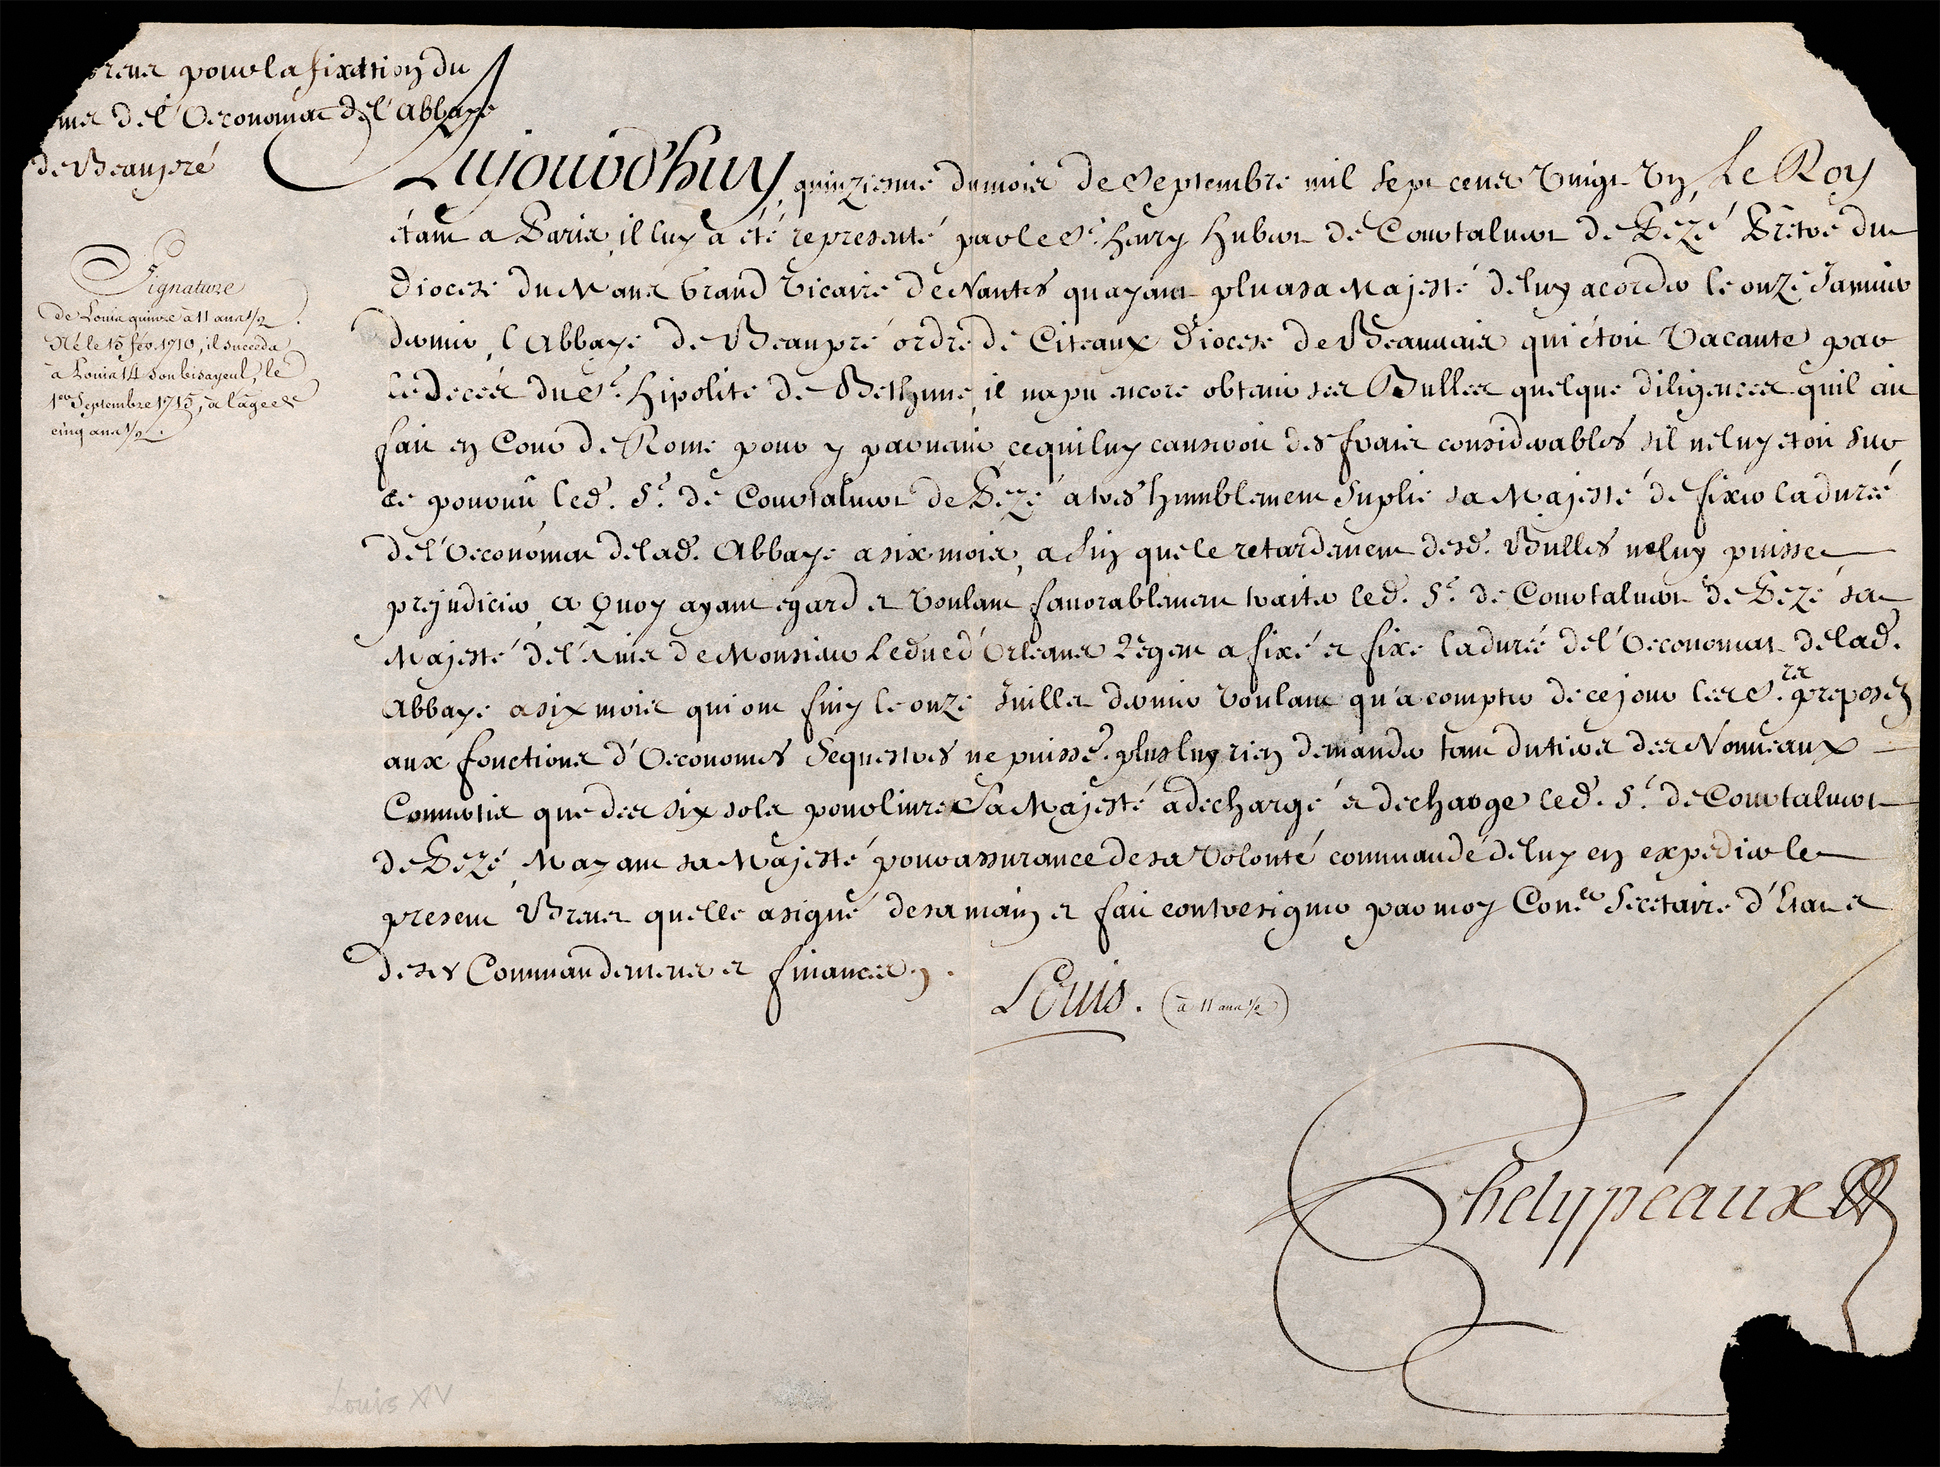 Brevet pour la fixation du
tems de l'Oeconomat de l'Abbaye
de Beaupré
Signature
de Louis quinze à 11 ans 1/2.
Né le 15 fév. 1710, il succéda
à Louis 14 son bisayeul, le
1er Septembre 1715, à l'âge de
cinq ans 1/2.
Aujourd'huy quinzieme du mois de Septembre mil sept cens vingt un, Le Roy
étant a Paris, il luy a été representé par le Sr. henry hubert de Courtaluert de Pezé Prêtre du
Diocese du Mans Grand Vicaire de Nantes qu'ayant plu a sa Majesté de luy acorder le onze Janvier
dernier, l'Abbaye de Beaupré ordre de Citeaux Diocese de Beauvais qui étoit vacante par
le deces du Sr. hipolite de Bethune, il n'a pu encore obtenir ses Bulles quelque diligences qu'il ait
fait en Cour de Rome pour y parvenir, ce qui luy causeroit des frais considerables s'il ne luy etoit sur
ce pourvû, led. Sr. de Courtaluert de Pezé a tres humblement suplié sa Majesté de fixer la durée
de l'Oeconomat de lad. Abbaye a six mois, afin que le retardement desd. Bulles ne luy puisse
prejudicier, a Quoy ayant egard et voulant favorablement traiter led. Sr. de Courtaluert de Pezé, sa
Majesté de l'avis de Monsieur Le duc d'Orleans Regent a fixé et fixe la durée de l'Oeconomat de lad.
Abbaye a six mois qui ont finy le onze Juillet dernier voulant qu'a compter de ce jour les Srs. preposez
aux fonctions d'Oeconomes Sequestres ne puisse. plus luy rien demander tant du tiers des Nouveaux
Convertis que des six sols pour livre, Sa Majesté a dechargé et decharge led. Sr. de Courtaluert
de Pezé, M'ayant sa Majesté pour assurance de sa volonté commandé de luy en expedier le
present Brevet qu'elle a signé de sa main et fait contresigner par moy Coner. Secretaire d'Etat et
de ses Commandemens et finances.
Louis. (à 11 ans 1/2)
Phelypeaux
Louis XV